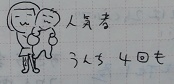 人気者
うんち 4回も